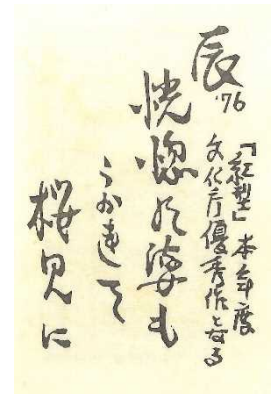 辰
'76
「紅型」本年度
文化庁優秀作となる
恍惚の婆も
うかれて
桜見に